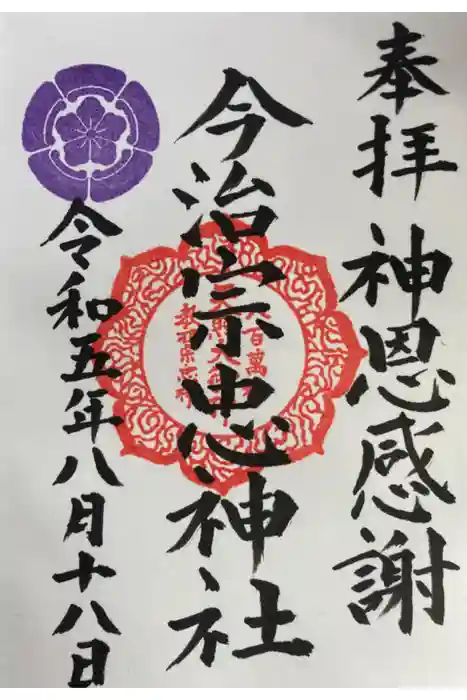 奉拝 神恩感謝
今治宗忠神社
令和五年八月十八日